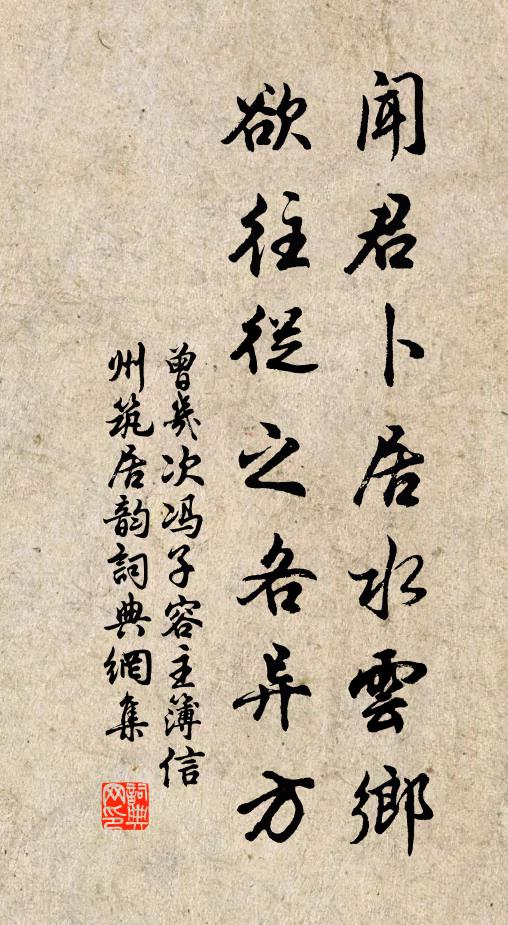 聞君卜居水雲鄉
欲往從之各异方
曾幾次冯子容主簿信
州筑居韵詞典網集
詞典
网印